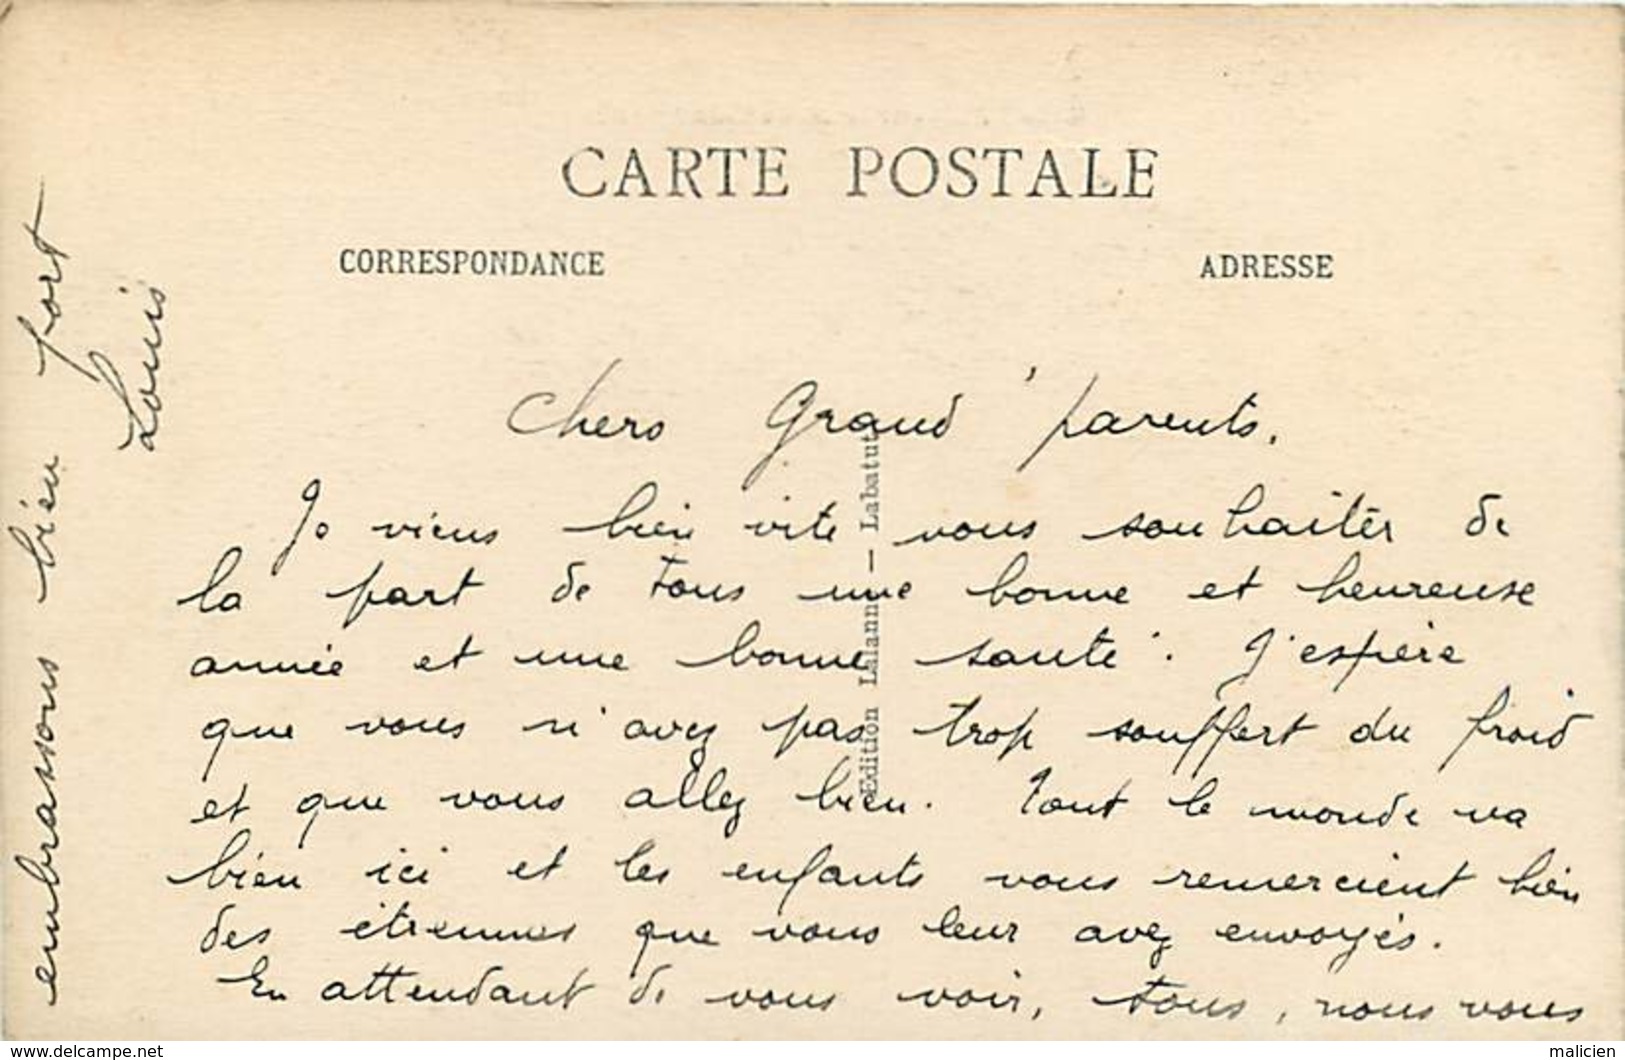 CARTE POSTALE
CORRESPONDANCE
ADRESSE
Chers Grand'parents.
Je viens bien vite vous souhaiter de
la part de tous une bonne et heureuse
année et une bonne santé. J'espère
que vous n'avez pas trop souffert du froid
et que vous allez bien. Tout le monde va
bien ici et les enfants vous remercient bien
des étrennes que vous leur avez envoyés.
En attendant de vous voir, tous, nous vous
embrassons bien fort
Louis
Edition Lalanne - Labatut
www.delcampe.net
malicien